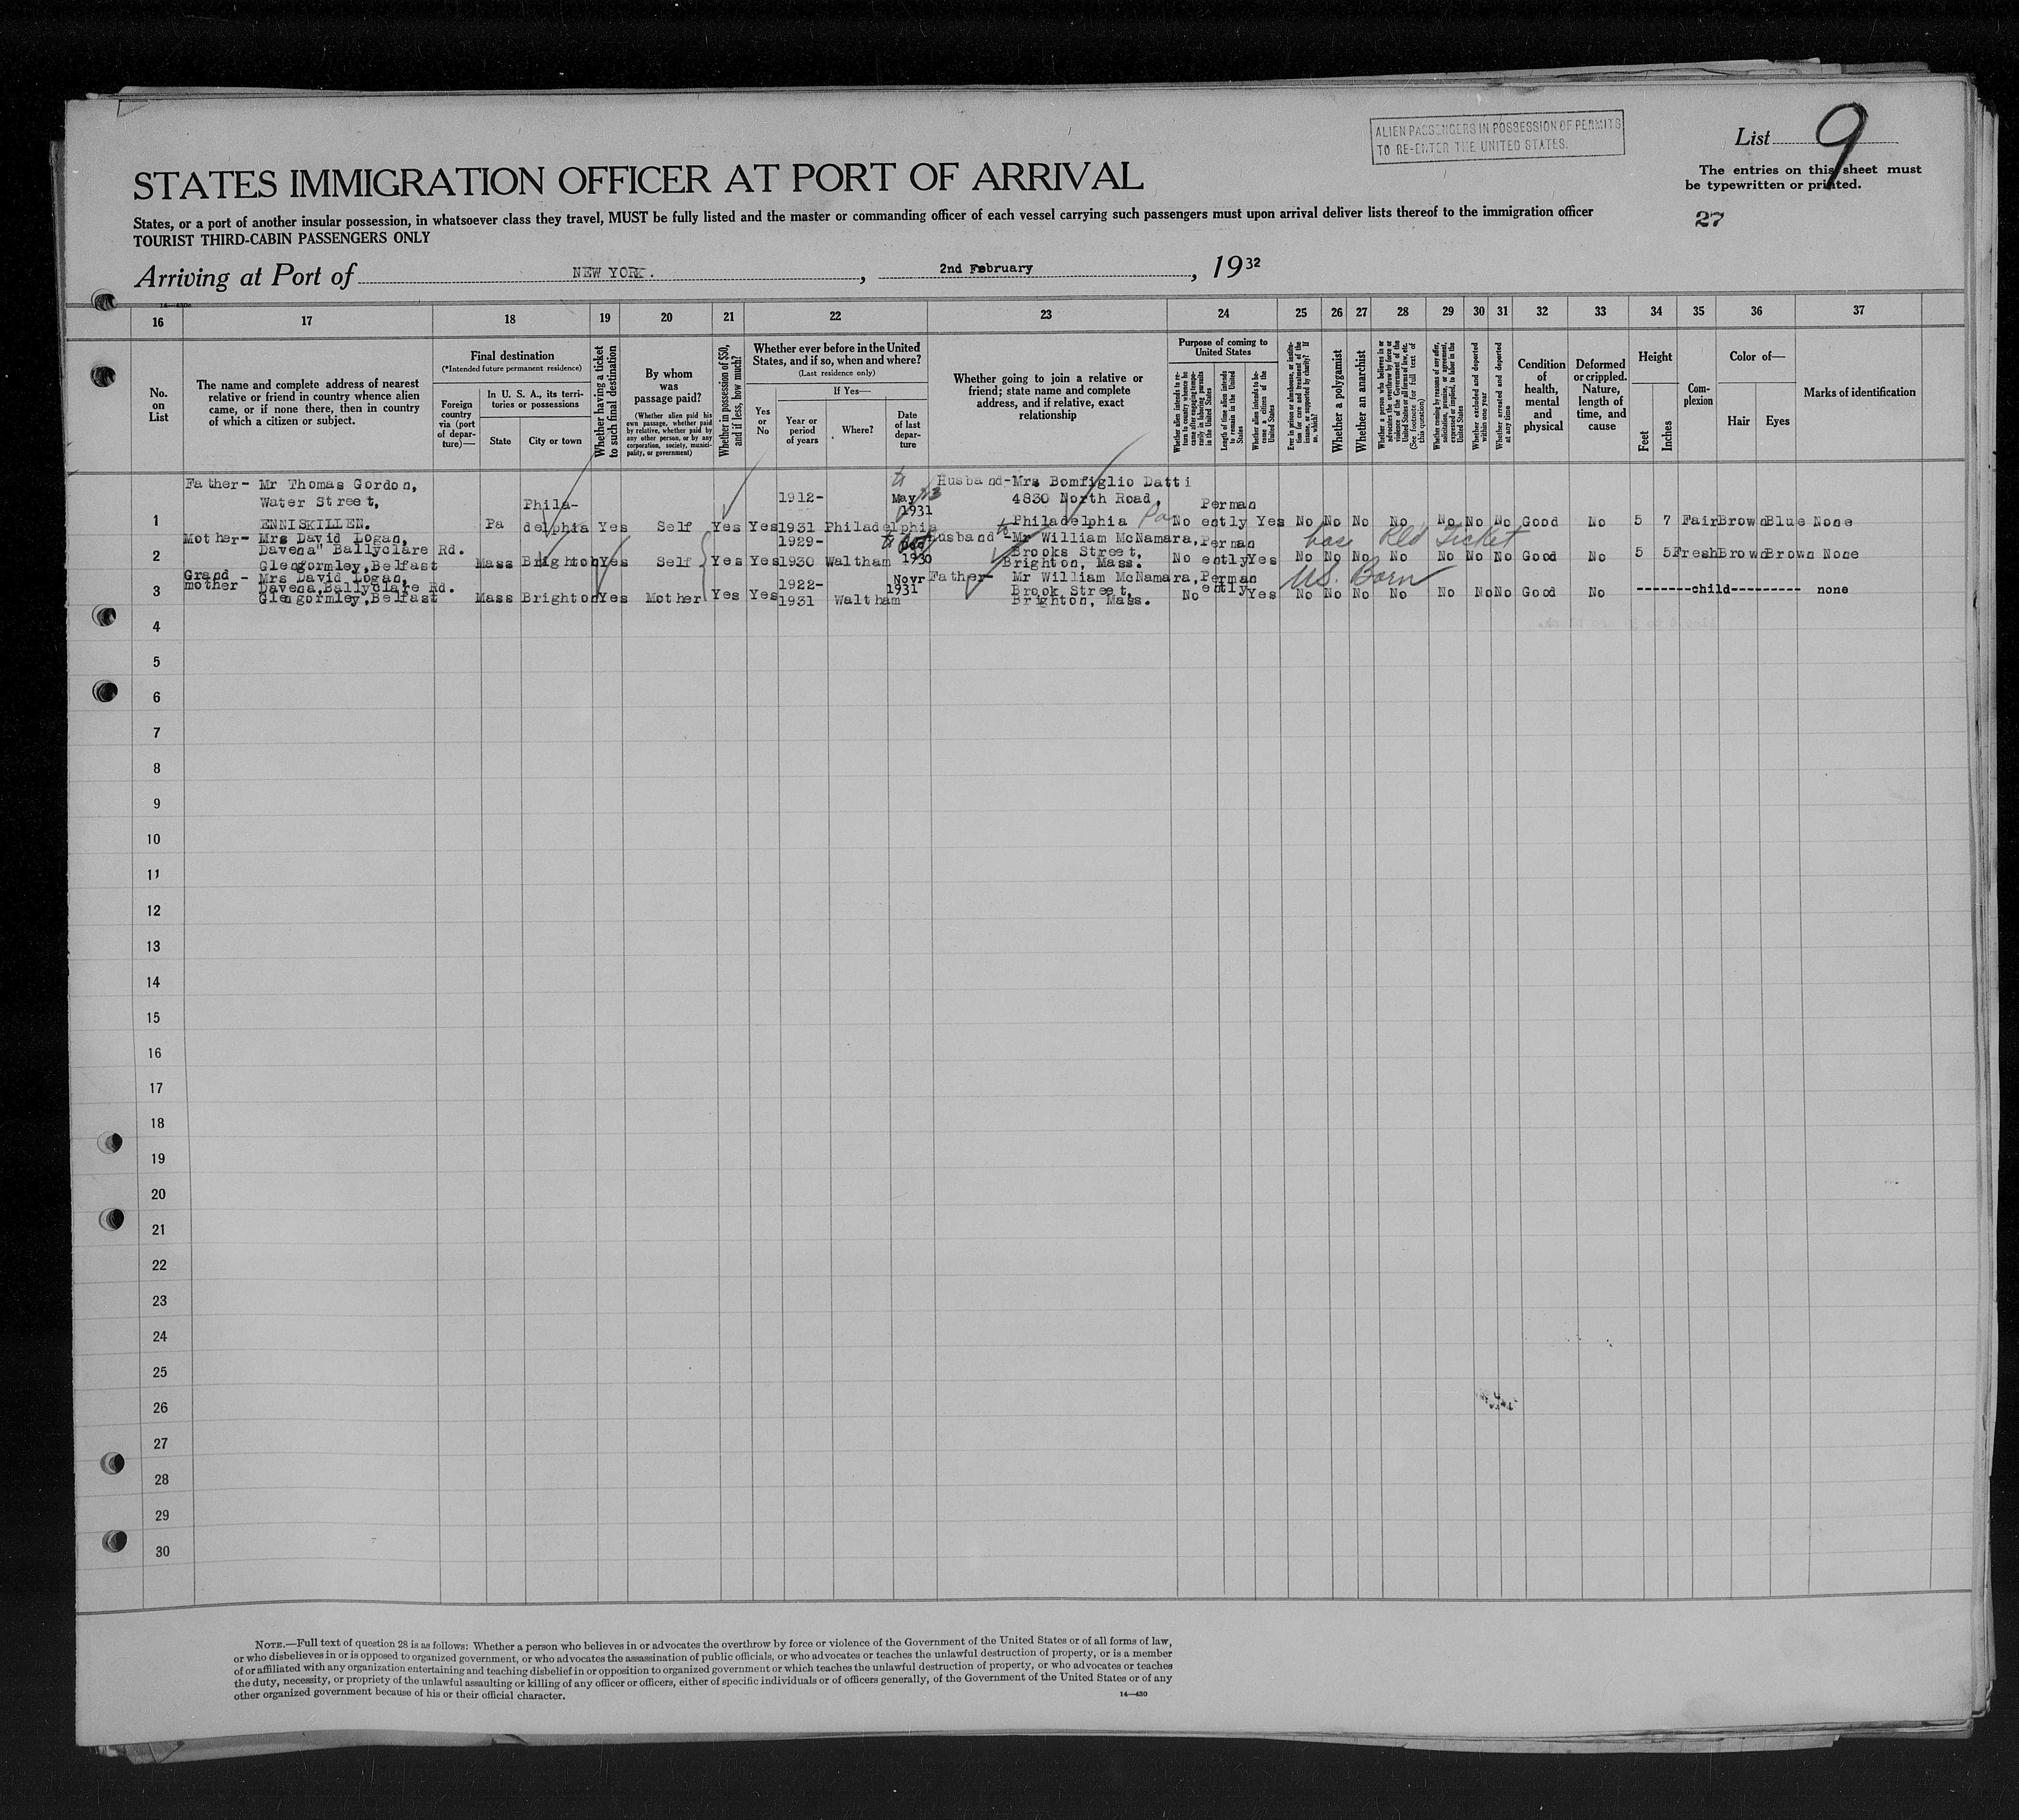 ALIEN PASSENGERS IN POSSESSION OF PERMITS
TO RE-ENTER THE UNITED STATES.
List 9
The entries on this sheet must
be typewritten or printed.
27
STATES IMMIGRATION OFFICER AT PORT OF ARRIVAL
States, or a port of another insular possession, in whatsoever class they travel, MUST be fully listed and the master or commanding officer of each vessel carrying such passengers must upon arrival deliver lists thereof to the immigration officer
TOURIST THIRD-CABIN PASSENGERS ONLY
Arriving at Port of NEW YORK. , 2nd February , 1932
16 17 18 19 20 21 22 23 24 25 26 27 28 29 30 31 32 33 34 35 36 37
No. on List
The name and complete address of nearest
relative or friend in country whence alien
came, or if none there, then in country
of which a citizen or subject.
Final destination
(*Intended future permanent residence)
Foreign country via (port of departure)—
In U. S. A., its territories or possessions
State
City or town
Whether having a ticket to such final destination
By whom was passage paid?
(Whether alien paid his own passage, whether paid by relative, whether paid by any other person, or by any corporation, society, municipality, or government)
Whether in possession of $50, and if less, how much?
Whether ever before in the United
States, and if so, when and where?
(Last residence only)
Yes or No
If Yes—
Year or period of years
Where?
Date of last departure
Whether going to join a relative or
friend; state name and complete
address, and if relative, exact
relationship
Purpose of coming to United States
Whether alien intends to return to country whence he came after engaging temporarily in laboring pursuits in the United States
Length of time alien intends to remain in the United States
Whether alien intends to become a citizen of the United States
Ever in prison or almshouse, or institution for care and treatment of the insane, or supported by charity? If so, which?
Whether a polygamist
Whether an anarchist
Whether a person who believes in or advocates the overthrow by force or violence of the Government of the United States or all forms of law, etc. (See footnote for full text of this question)
Whether coming by reasons of any offer, solicitation, promise, or agreement, expressed or implied, to labor in the United States
Whether excluded and deported within one year
Whether arrested and deported at any time
Condition of health, mental and physical
Deformed or crippled. Nature, length of time, and cause
Height
Feet
Inches
Complexion
Color of—
Hair
Eyes
Marks of identification
1 Father- Mr Thomas Gordon,
Water Street,
ENNISKILLEN.
Pa Phila-
delphia Yes Self Yes Yes 1912-
1931 Philadelphia May 1931
Husband-Mrs Bomfiglio Datti
4830 North Road,
Philadelphia Pa
No Perman
ently Yes No No No No No No No Good No 5 7 Fair Brown Blue None
2 Mother- Mrs David Logan,
Davena" Ballyclare Rd.
Glengormley, Belfast
Mass Brighton Yes Self Yes Yes 1929-
1930 Waltham 1930
Husband-Mr William McNamara,
Brooks Street,
Brighton, Mass.
has Rtd Ticket
No Perman
ently Yes No No No No No No No Good No 5 5 Fresh Brown Brown None
3 Grand - Mrs David Logan,
mother Davena, Ballyclare Rd.
Glengormley, Belfast
Mass Brighton Yes Mother Yes Yes 1922-
1931 Waltham Novr 1931
Father- Mr William McNamara,
Brook Street,
Brighton, Mass.
US. Born
No Perman
ently Yes No No No No No No No Good No -------child--------- none
4
5
6
7
8
9
10
11
12
13
14
15
16
17
18
19
20
21
22
23
24
25
26
27
28
29
30
NOTE.—Full text of question 28 is as follows: Whether a person who believes in or advocates the overthrow by force or violence of the Government of the United States or of all forms of law,
or who disbelieves in or is opposed to organized government, or who advocates the assassination of public officials, or who advocates or teaches the unlawful destruction of property, or is a member
of or affiliated with any organization entertaining and teaching disbelief in or opposition to organized government or which teaches the unlawful destruction of property, or who advocates or teaches
the duty, necessity, or propriety of the unlawful assaulting or killing of any officer or officers, either of specific individuals or of officers generally, of the Government of the United States or of any
other organized government because of his or their official character.
14—430